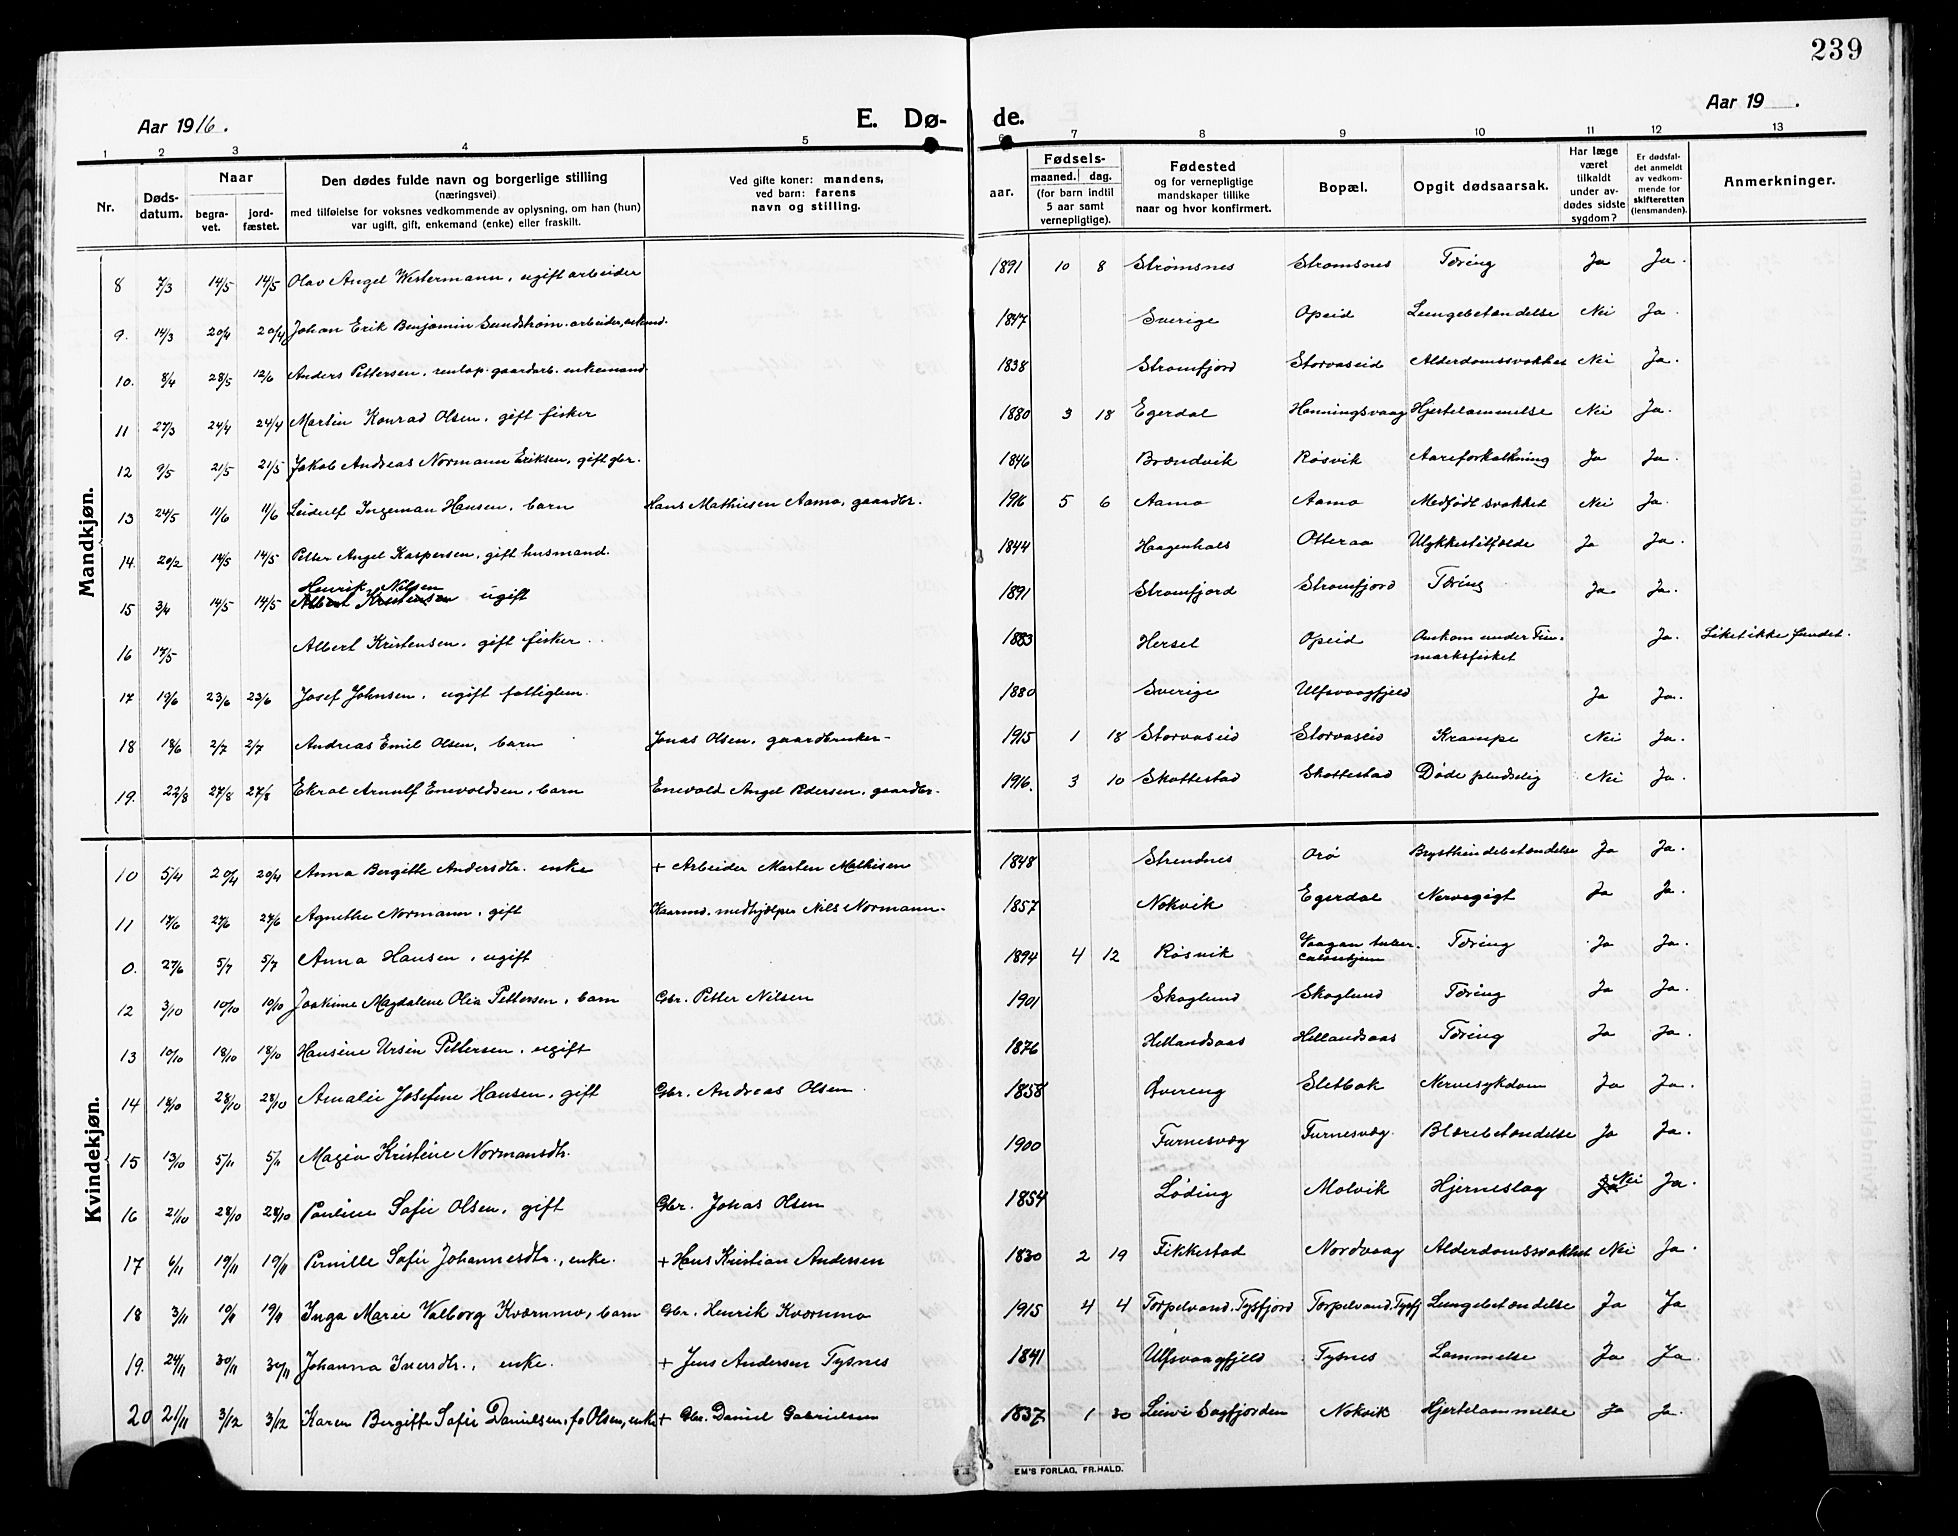 239
Aar 1916.
E. Dø-
de.
Aar 19 .
1 2 3 4 5 6 7 8 9 10 11 12 13
Nr.
Døds-
datum.
Naar
begra-
vet.
jord-
fæstet.
Den dødes fulde navn og borgerlige stilling
(næringsvei)
med tilføielse for voksnes vedkommende av oplysning, om han (hun)
var ugift, gift, enkemand (enke) eller fraskilt.
Ved gifte koner: mandens,
ved barn: farens
navn og stilling.
aar.
Fødsels-
maaned. dag.
(for barn indtil
5 aar samt
vernepligtige).
Fødested
og for vernepligtige
mandskaper tillike
naar og hvor konfirmert.
Bopæl.
Opgit dødsaarsak.
Har læge
været
tilkaldt
under av-
dødes sidste
sygdom?
Er dødsfal-
det anmeldt
av vedkom-
mende for
skifteretten
(lensmanden).
Anmerkninger.
Mandkjøn.
8 7/3 14/5 14/5 Olav Angel Westermann, ugift arbeider 1891 10 8 Strømsnes Strømsnes Tæring Ja Ja.
9. 14/3 20/4 20/4 Johan Erik Benjamin Sundstrøm. arbeider, enkemd. 1847 Sverige Opeid Lungebetændelse Nei Ja.
10. 8/4 28/5 12/6 Anders Pettersen, gaardarb. enkemand 1838 Strømfjord Storvaseid Alderdomssvakhet Nei Ja.
11 27/3 24/4 24/4 Martin Konrad Olsen, gift fisker 1880 3 18 Egerdal Honningsvaag Hjertelammelse Nei Ja.
12 9/5 21/5 21/5 Jakob Andreas Normann Eriksen, gift gbr. 1846 Brændvik Røsvik Aareforkalkning Ja Ja.
13 24/5 11/6 11/6 Leidulf Ingeman Hansen, barn Hans Mathisen Aamo, gaardbr. 1916 5 6 Aamo Aamo Medfødt svakhet Nei Ja.
14. 20/2 14/5 14/5 Petter Angel Kaspersen, gift husmand. 1844 Haagenhals Otteraa Ulykkestilfælde Ja Ja.
Henrik Nilsen
15 3/4 14/5 14/5 Albert Kristensen ugift 1891 Strømfjord Strømfjord Tæring Ja Ja.
16 14/5 Albert Kristensen, gift fisker 1883 Hersel Opeid Omkom under Fin- Ja. Liket ikke fundet.
marksfisket
17 19/6 23/6 23/6 Josef Johnsen, ugift fattiglem. 1880 Sverige Ulfsvaagfjeld Ja Ja.
18 18/6 2/7 2/7 Andreas Emil Olsen, barn Jonas Olsen, gaardbruker- 1915 1 18 Storvaseid Storvaseid Krampe Nei Ja.
19. 22/8 27/8 27/8 Ekral Arnulf Enevoldsen, barn Enevold Angel Pedersen, gaardbr. 1916. 3 10 Skottestad Skottestad Døde pludselig Nei Ja.
Kvindekjøn.
10 5/4 20/4 20/4 Anna Bergitte Andersdtr. enke + Arbeider Morten Mathisen 1848 Strendnes Orø Brysthindebetændelse Ja Ja.
11 17/6 27/6 27/6 Agnethe Normann, gift medhjælper Nils Normann 1857 Nokvik Egerdal Nervegigt Ja Ja.
0. 27/6 5/7 5/7 Anna Hansen, ugift 1894 4 12 Røsvik Vaagan tuber- Tæring Ja Ja.
culosehjem
12 3/10 10/10 10/10 Joakime Magdalene Olea Pettersen, barn Gbr. Petter Nilsen 1901 Skoglund Skoglund Tæring Ja Ja.
13 10/10 18/10 18/10 Hansine Ursin Pettersen, ugift 1876 Hellandsaas Hellandsaas Tæring Ja Ja.
14 18/10 28/10 28/10 Amalie Josefine Hansen, gift Gbr. Andreas Olsen 1858 Øvereng Sletbak Nervesykdom Ja Ja.
15 13/10 5/11 5/11 Magea Kristine Normansdtr. 1900 Furnesvæg Furnesvæg. Blærebetændelse Ja Ja.
16 21/10 28/10 28/10 Pauline Sofie Olsen, gift Gbr. Johas Olsen 1854 Løding Molvik Hjerneslag Ja Nei Ja.
17 6/11 19/11 19/11 Pernille Sofie Johannesdtr., enke. + Hans Kristian Andersen 1830 2 19 Fikkestad Nordvaag Alderdomssvakhet Nei Ja.
18 3/11 19/11 Inga Marie Valborg Kværnmo, barn Gbr. Henrik Kværnmo 1915 4 4 Torpelvand. Tysfjord Torpelvand, Tysfj Lungebetændelse Ja Ja
19. 24/11 30/11 30/11 Johanna Iversdtr., enke. + Jens Andersen Tysnes 1841 Ulfsvaagfjeld Tysnes Lammelse Ja Ja.
20 21/11 3/12 3/12 Karen Bergitte Sofie Danielsen, f. Olsen, enke + Gbr. Daniel Gabrielsen 1837 1 30 Leine Sagfjorden Nokvik Hjertelammelse Ja Ja.
EM'S FORLAG, FR. HALD.